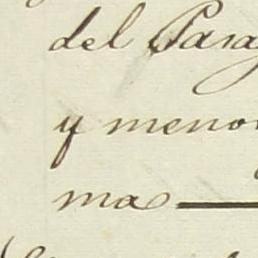 del Para
y meno
ma